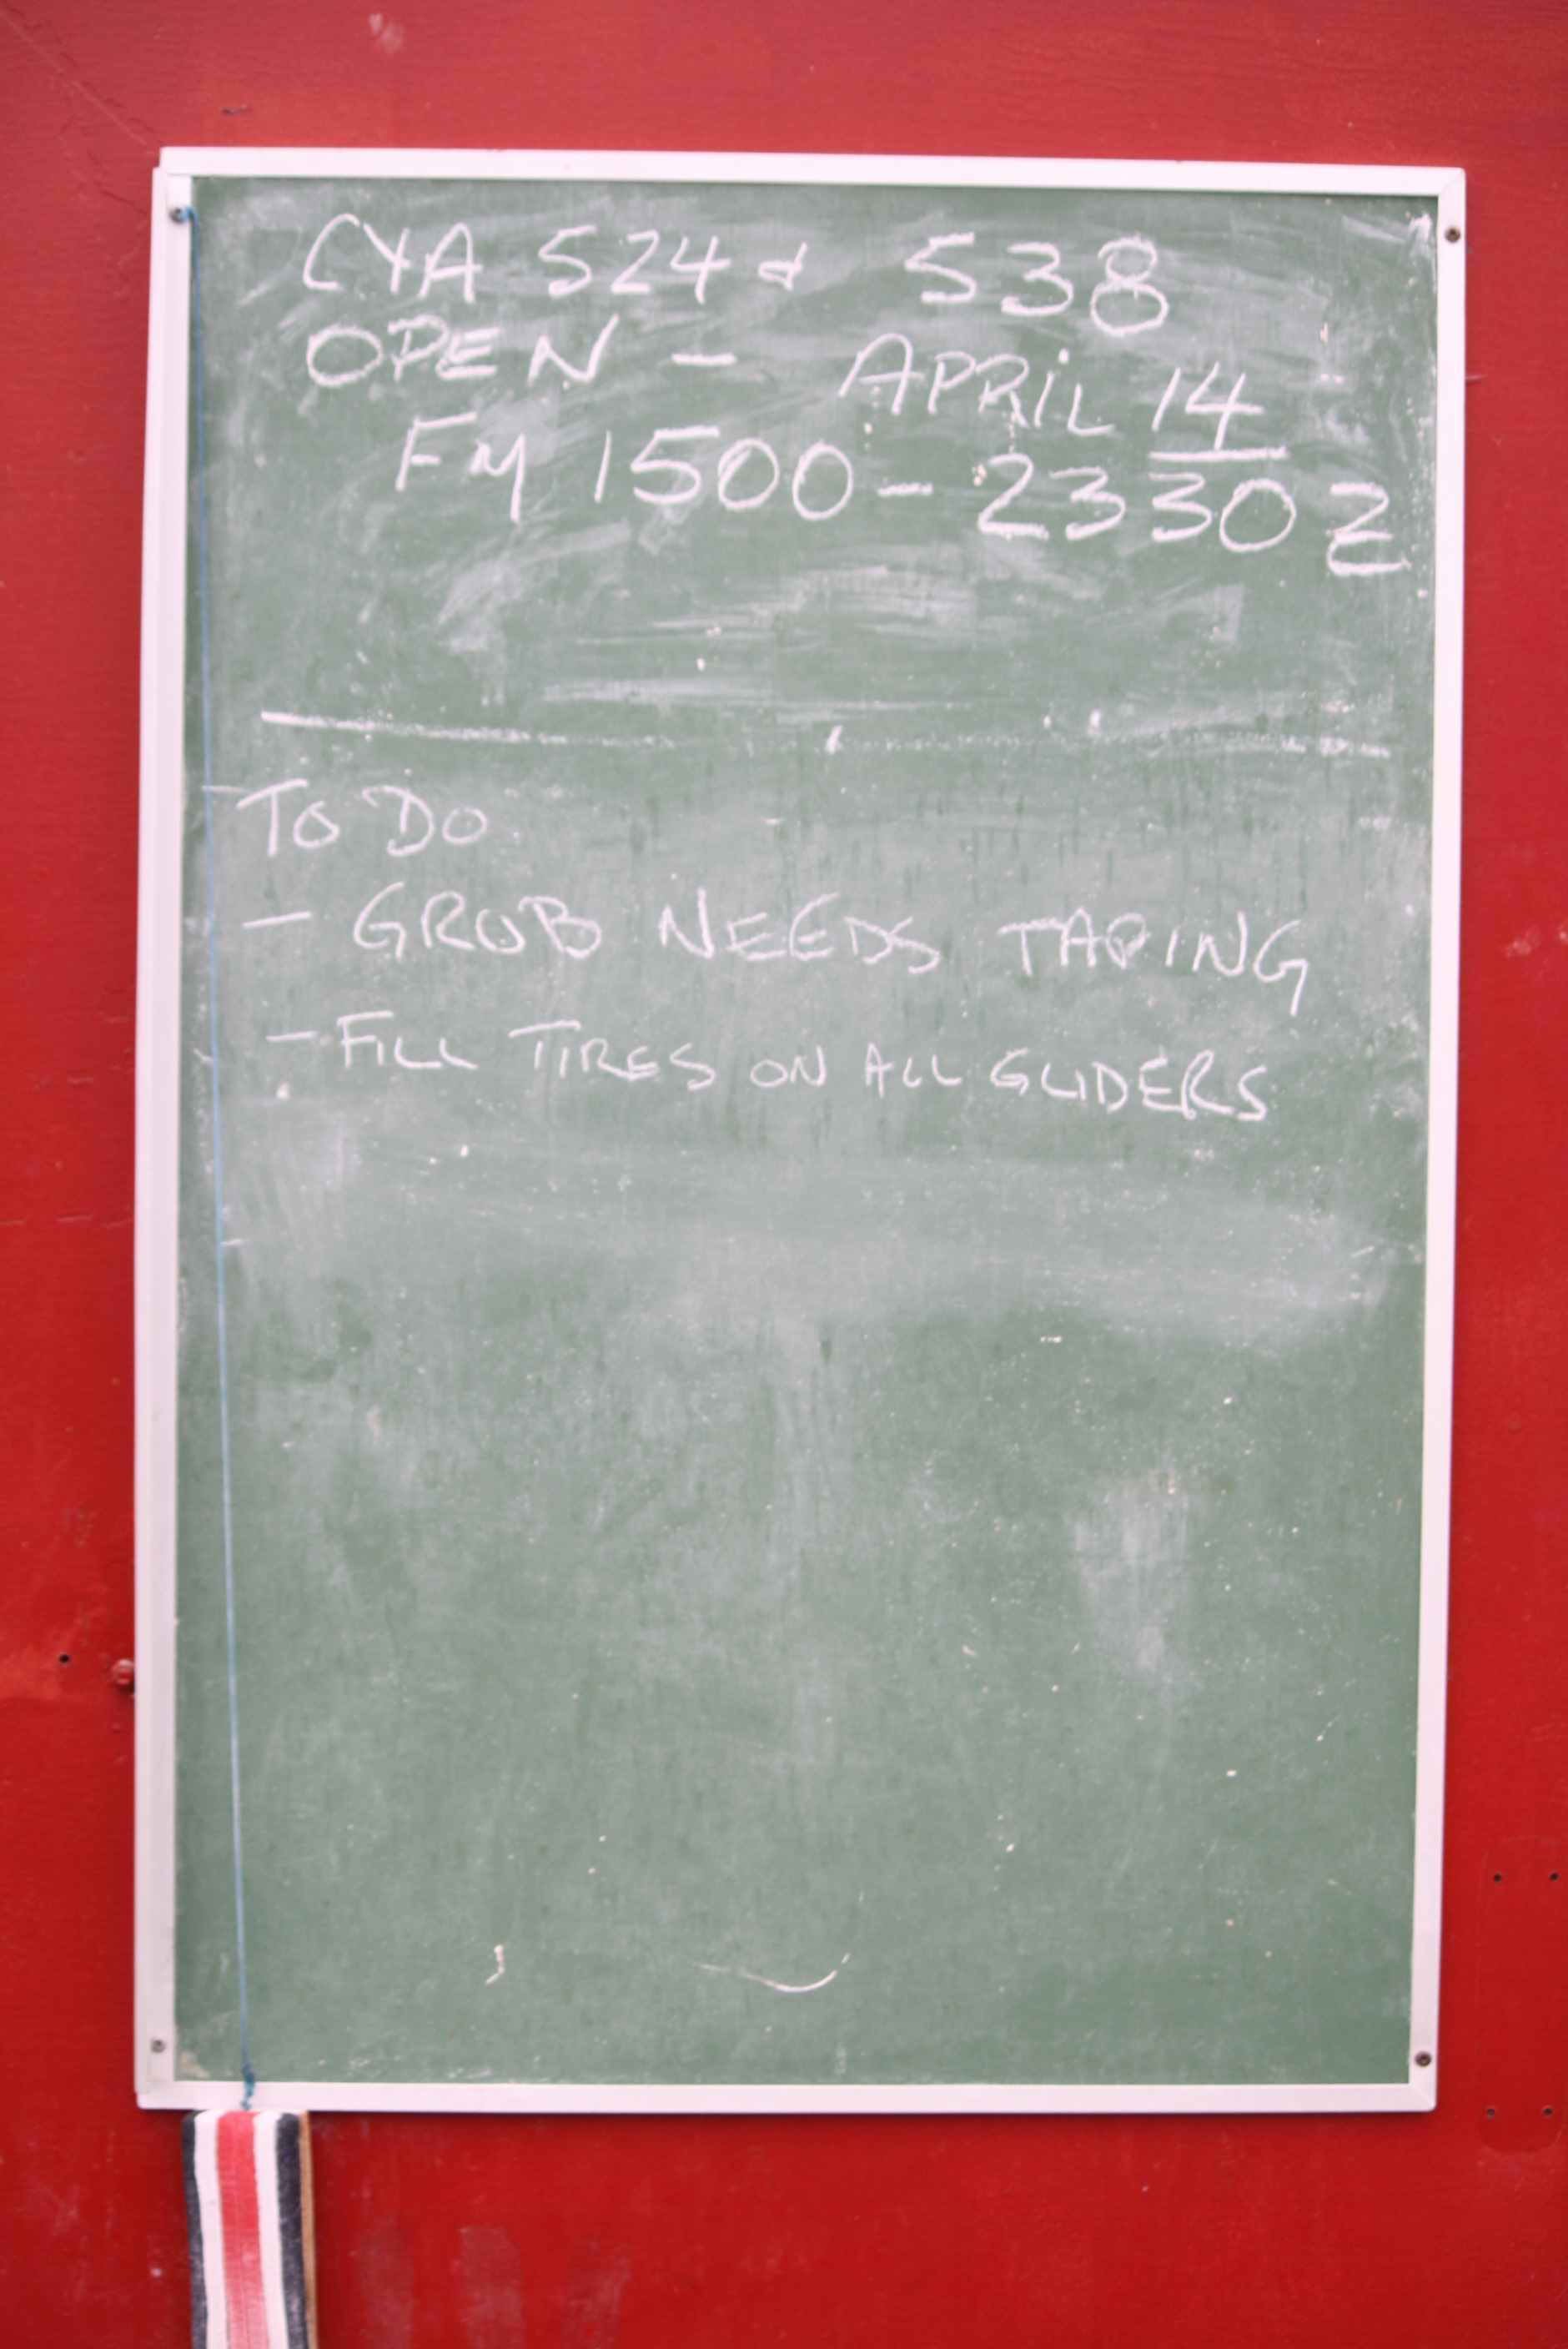 CYA 524 & 538
OPEN - APRIL 14
FM 1500 - 2330 Z
TO DO
- GROB NEEDS TAPING
- FILL TIRES ON ALL GLIDERS